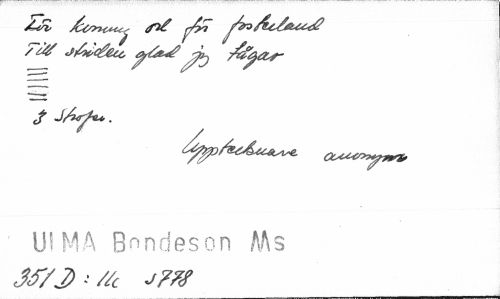 För konung och för fosterland
Till striden glad jag tågar
3 strofer.
Upptecknare anonym
ULMA Bondeson Ms
351 D: 11c s 778